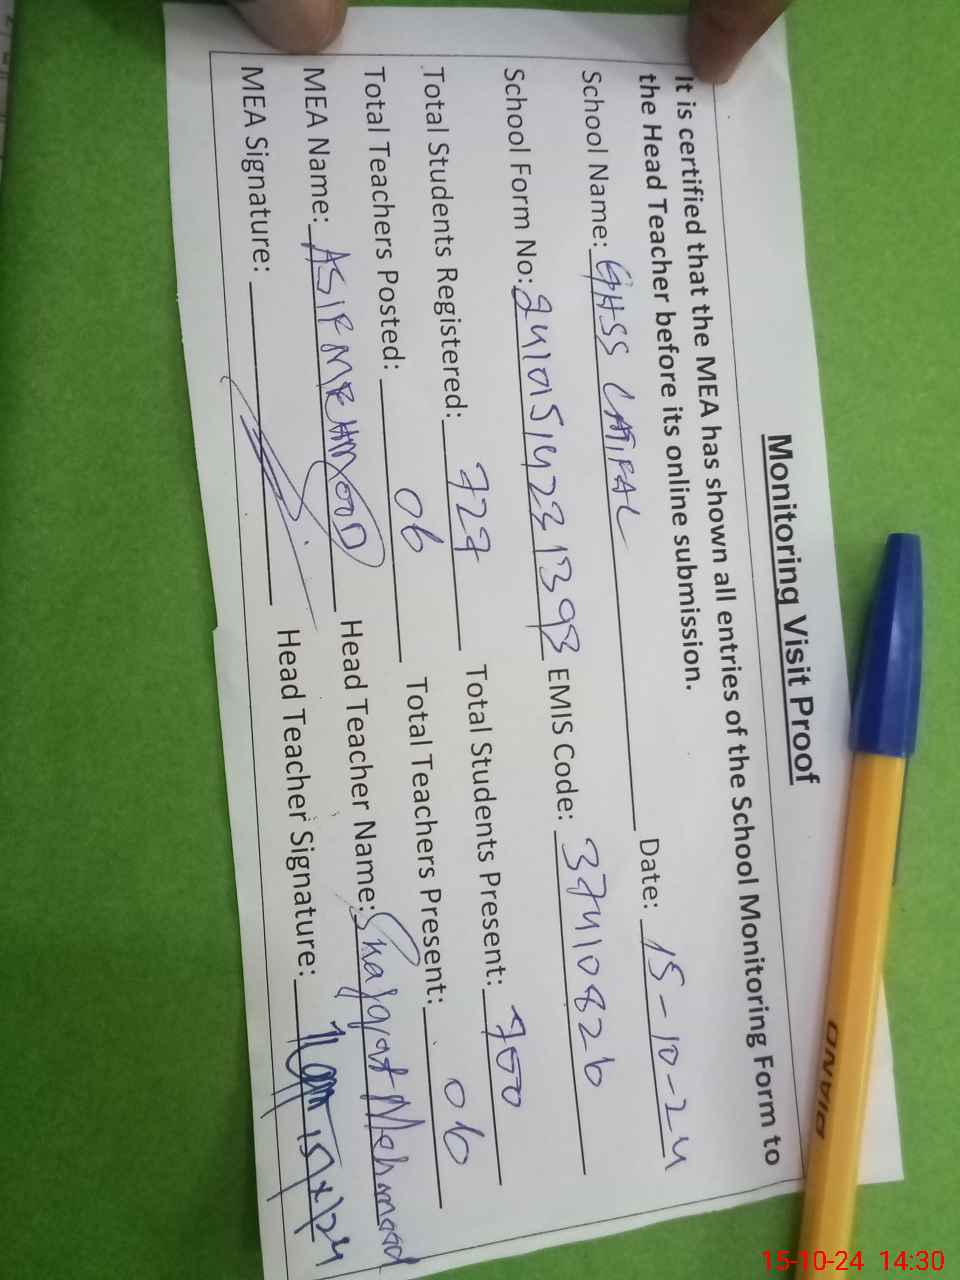 Monitoring Visit Proof
It is certified that the MEA has shown all entries of the School Monitoring Form to
the Head Teacher before its online submission.
School Name: GHSS Date: 15-10-24
School Form No: EMIS Code: 37410826
Total Students Registered: 727 Total Students Present: 700
Total Teachers Posted: 06 Total Teachers Present: 06
MEA Name: ASIF MEHMOOD Head Teacher Name: Shafqat Mehmood
MEA Signature: Head Teacher Signature:
PIANO
15-10-24 14:30